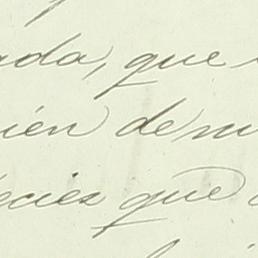 ada, que
ién dem
ecies que